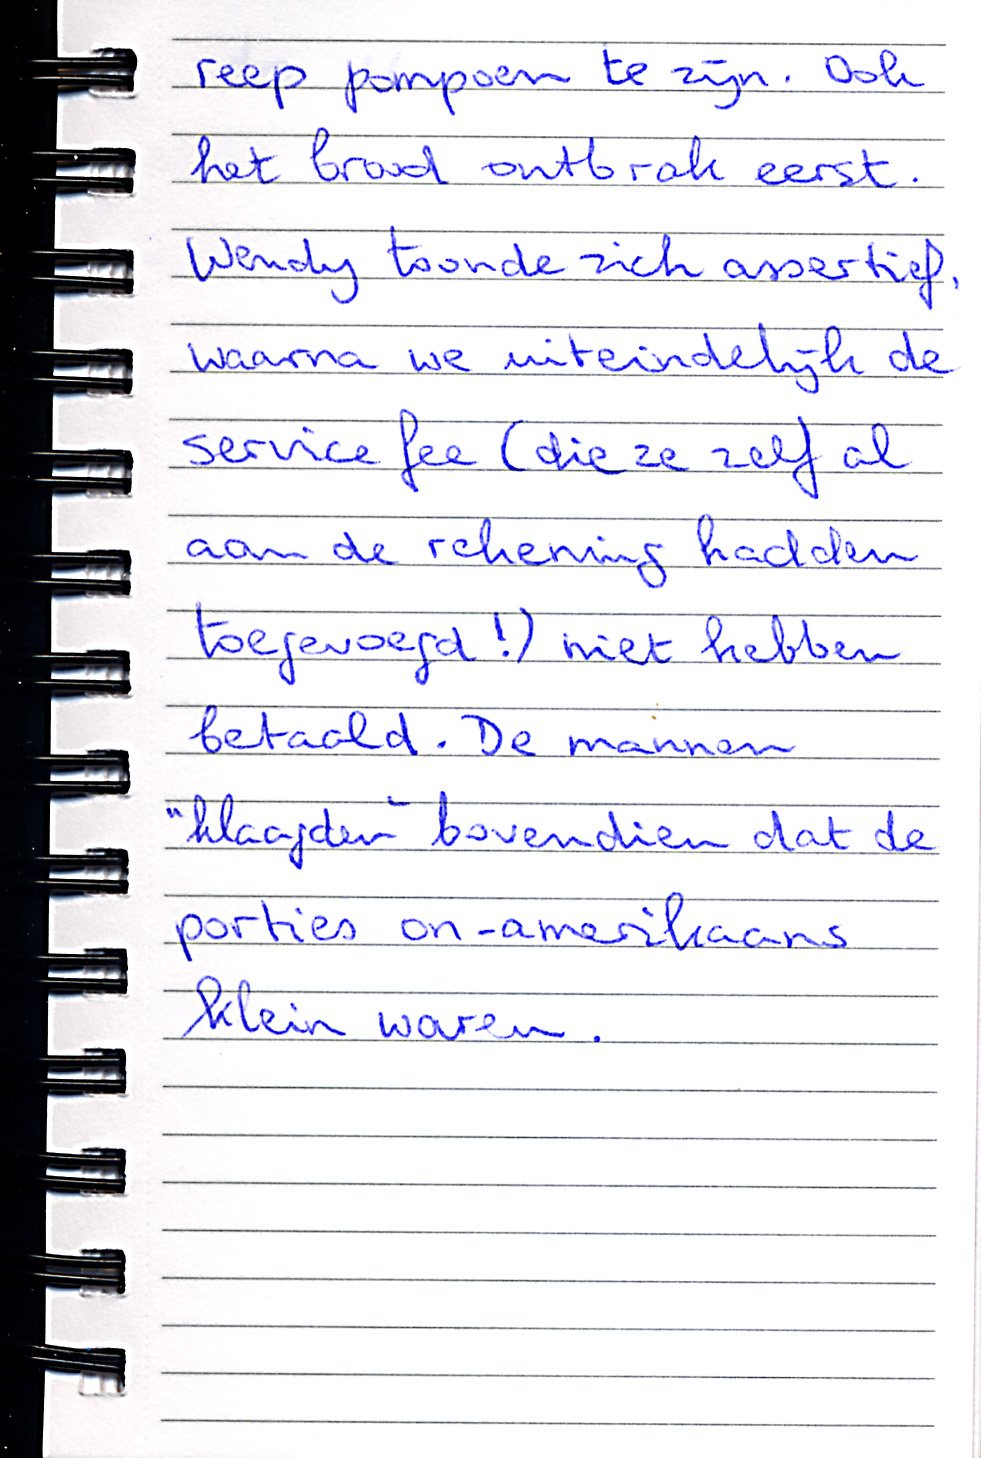 reep pompoen te zijn. Ook
het brood ontbrak eerst.
Wendy toonde zich assertief,
waarna we uiteindelijk de
service fee (die ze zelf al
aan de rekening hadden
toegevoegd!) niet hebben
betaald. De mannen
"klaagden" bovendien dat de
porties on-amerikaans
klein waren.